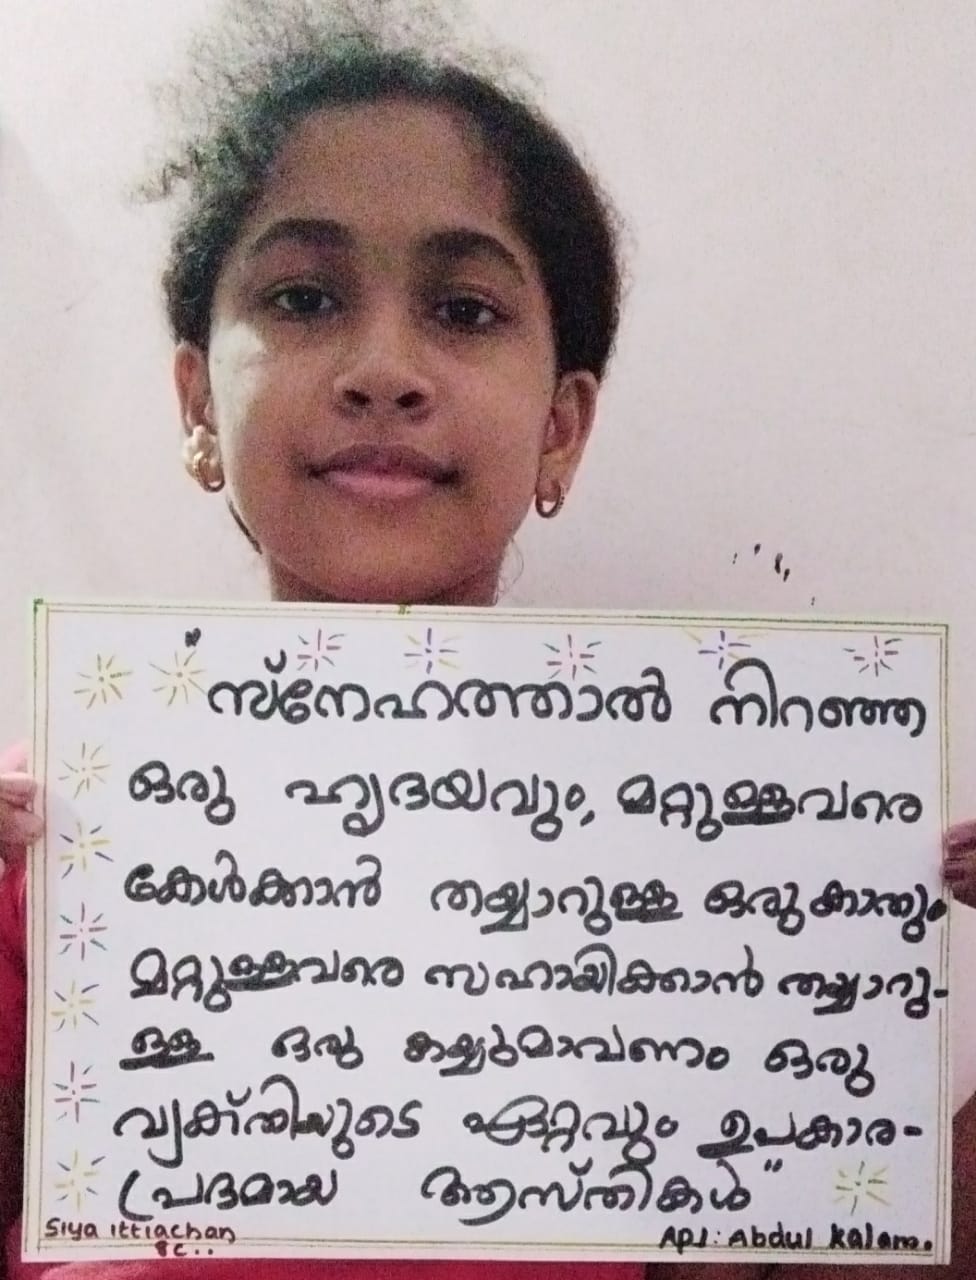 "സ്നേഹത്താൽ നിറഞ്ഞ
ഒരു ഹൃദയവും, മറ്റുള്ളവരെ
കേൾക്കാൻ തയ്യാറുള്ള ഒരുകാതും
മറ്റുള്ളവരെ സഹായിക്കാൻ തയ്യാറു-
ള്ള ഒരു കയ്യുമാവണം ഒരു
വ്യക്തിയുടെ ഏറ്റവും ഉപകാര-
പ്രദമായ ആസ്തികൾ"
Siya ittiachan
8c..
APJ: Abdul Kalam.